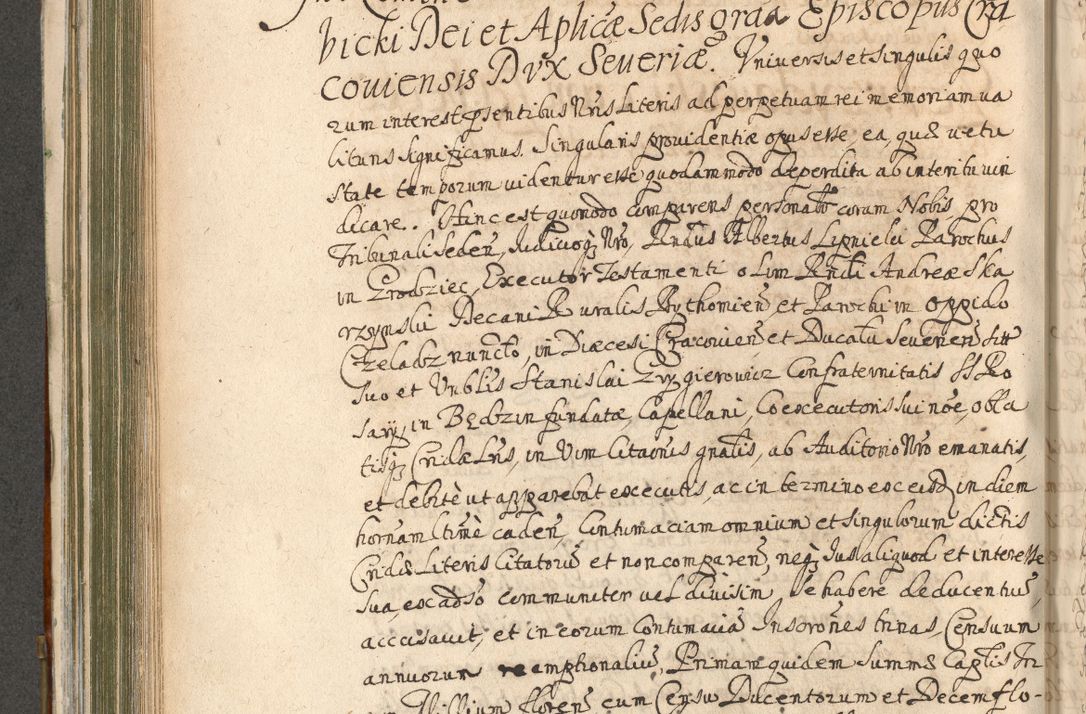 bicki Dei et Aplicæ Sedis gratia Episcopus Cra
coviensis Dux Severiæ. Universis et singulis quo
rum interest pñsentibus Nris Literis ad perpetuam rei memoriam va
lituris significamus. Singularis providentiæ opus esse ea, quæ vetu
state temporum videntur esse quodammodo deperdita ab interitu vin
dicare. Hinc est quomodo comparens personalr coram Nobis pro
Tribunali seden, Judicioq Nro, Rndus Albertus Lipnicki Parochus
in Grodziec, Executor Testamenti olim Rndi Andreæ Ska
rzynski Decani Ruralis Bythomien et Parochi in oppido
Czeladz nuncto, in Diæcesi Cracovien et Ducatu Severien sitt
suo et Vnblis Stanislai Grzgierowicz Confraternitatis SS Ro
sarij in Będzin fundatæ, Capellani, Coexecutoris sui noe, obla
tisq Cridæ Lris, in vim Citaonis gnalis, ab Auditorio Nro emanatis,
et debitè ut apparebat executis, ac in termino ex eisd, in diem
hornam ltimè caden, Contumaciam omnium et singulorum dictis
Cridæ Literis Citatoru et non comparen, neq Jus aliquod et interesse
sua, ex adso communiter vel divisim, se habere deducentiu,
accusavit, et in eorum Contumacia Inscrones trinas, Censuum
annuorum reemptionaliu, Primam quidem summæ Captis Tri
Millium floren cum Censu Ducentorum et Decem flo-